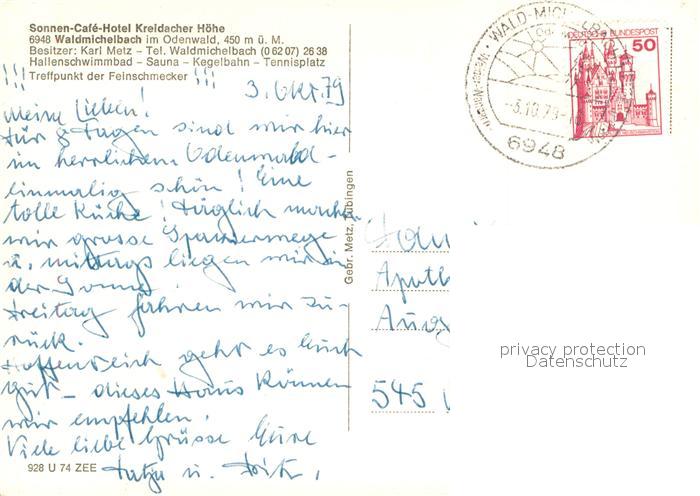 Sonnen-Café-Hotel Kreidacher Höhe
6948 Waldmichelbach im Odenwald, 450 m ü. M.
Besitzer: Karl Metz - Tel. Waldmichelbach (0 62 07) 26 38
Hallenschwimmbad - Sauna - Kegelbahn - Tennisplatz
!!! Treffpunkt der Feinschmecker !!!
3. Okt. 79
Meine Lieben!
Für 8 Tagen sind wir hier
im herrlichen Odenwald -
einmalig schön! Eine
tolle Küche! Täglich machen
wir grosse Spazierwege
u. mittags liegen wir in
der Sonne.
Freitag fahren wir zu-
rück.
Hoffentlich geht es Euch
gut - dieses Haus können
wir empfehlen.
Viele liebe Grüsse Eure
u. Fritz.
928 U 74 ZEE
Gebr. Metz, Tübingen
WALD-MICHELBACH
-3.10.79-
6948
DEUTSCHE BUNDESPOST
50
Apoth
Aug
545
privacy protection
Datenschutz